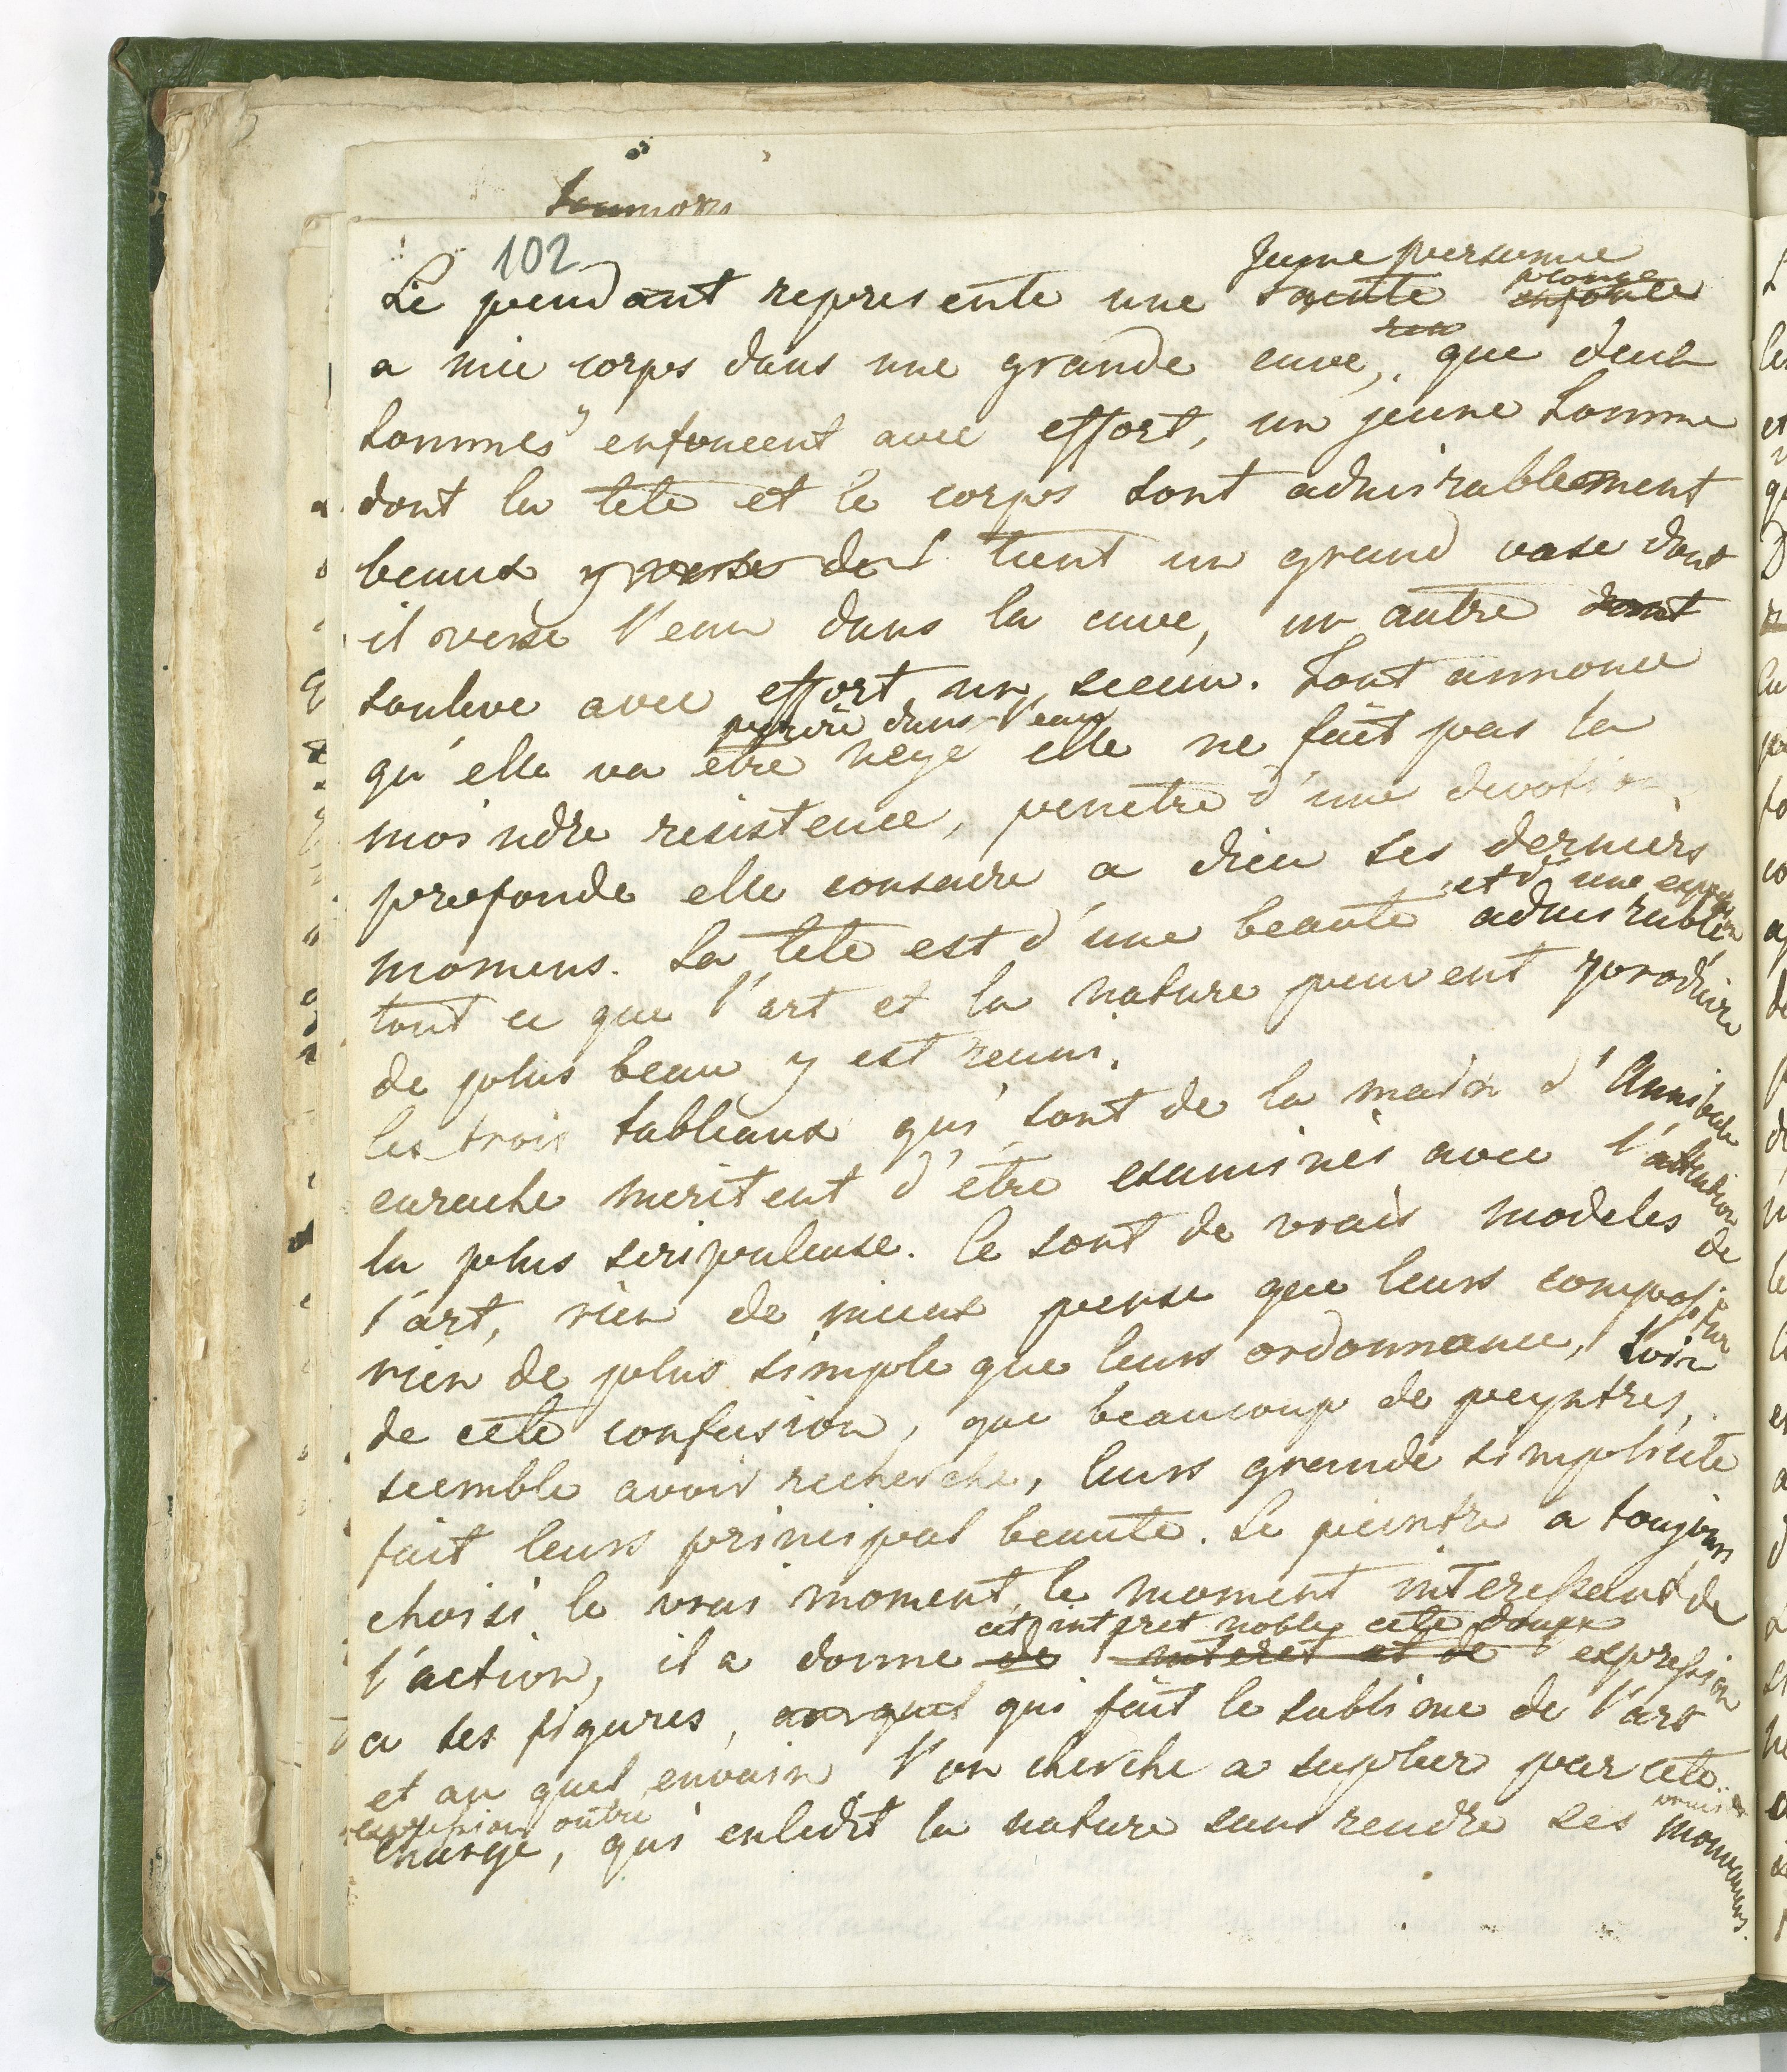 102
jeune personne
Le pendant represente une sainte plongé enfoncée
a mie corps dans une grande cuve, que deux
hommes enfoncent avec effort, un jeune homme
dont la tete et le corps sont admirablement
beaux y verse de l tient un grand vase dont
il verse l'eau dans la cuve, un autre dont
souleve avec effort un sceau. Tout annonce
perire dans l'eau
qu'elle va être neyé elle ne fait pas la
moindre resistence, penetre d'une devotion
profonde elle consacre a dieu ses derniers
et d'une expression
momens. La tete est d'une beauté admirable
tout ce que l'art et la nature peuvent produire
de plus beau y est reuni.
les trois tableaux qui sont de la main d'Annibale
carache meritent d'être examinés avec l'attention
la plus scripuleuse. Ce sont de vrais modeles de
l'art, rien de mieux pensé que leurs composition
rien de plus simple que leurs ordonnance, loin
de cete confusion, que beaucoup de peyntres,
scemble avoir recherche, leurs grande simplicité
fait leurs principal beauté. Le peintre a toujours
choisi le vrai moment, le moment interessant de
cet interet noble cete douce
l'action, il a donne de l'interet et de l'expression
a ses figures, auquel qui fait le sublime de l'art
et au quel envain l'on cherche a suplier par cete
expression outre vrais
charge, qui enledit la nature sans rendre ses mouvemens.